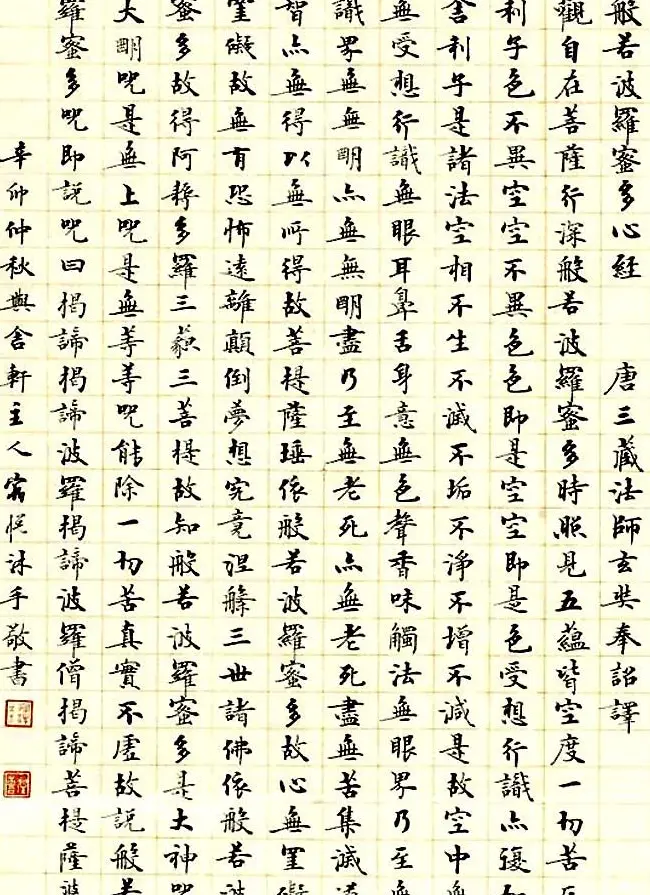 般若波羅蜜多心経　唐三藏法師玄奘奉詔譯
觀自在菩薩行深般若波羅蜜多時照見五蘊皆空度一切苦厄
利子色不異空空不異色色即是空空即是色受想行識亦復如
舍利子是諸法空相不生不滅不垢不淨不增不減是故空中無
無受想行識無眼耳鼻舌身意無色聲香味觸法無眼界乃至無
識界無無明亦無無明盡乃至無老死亦無老死盡無苦集滅道
智亦無得以無所得故菩提薩埵依般若波羅蜜多故心無罣礙
罣礙故無有恐怖遠離顛倒夢想究竟涅槃三世諸佛依般若波
蜜多故得阿耨多羅三藐三菩提故知般若波羅蜜多是大神咒
大明咒是無上咒是無等等咒能除一切苦真實不虛故說般若
羅蜜多咒即說咒曰揭諦揭諦波羅揭諦波羅僧揭諦菩提薩婆
辛卯仲秋舍軒主人沐手敬書